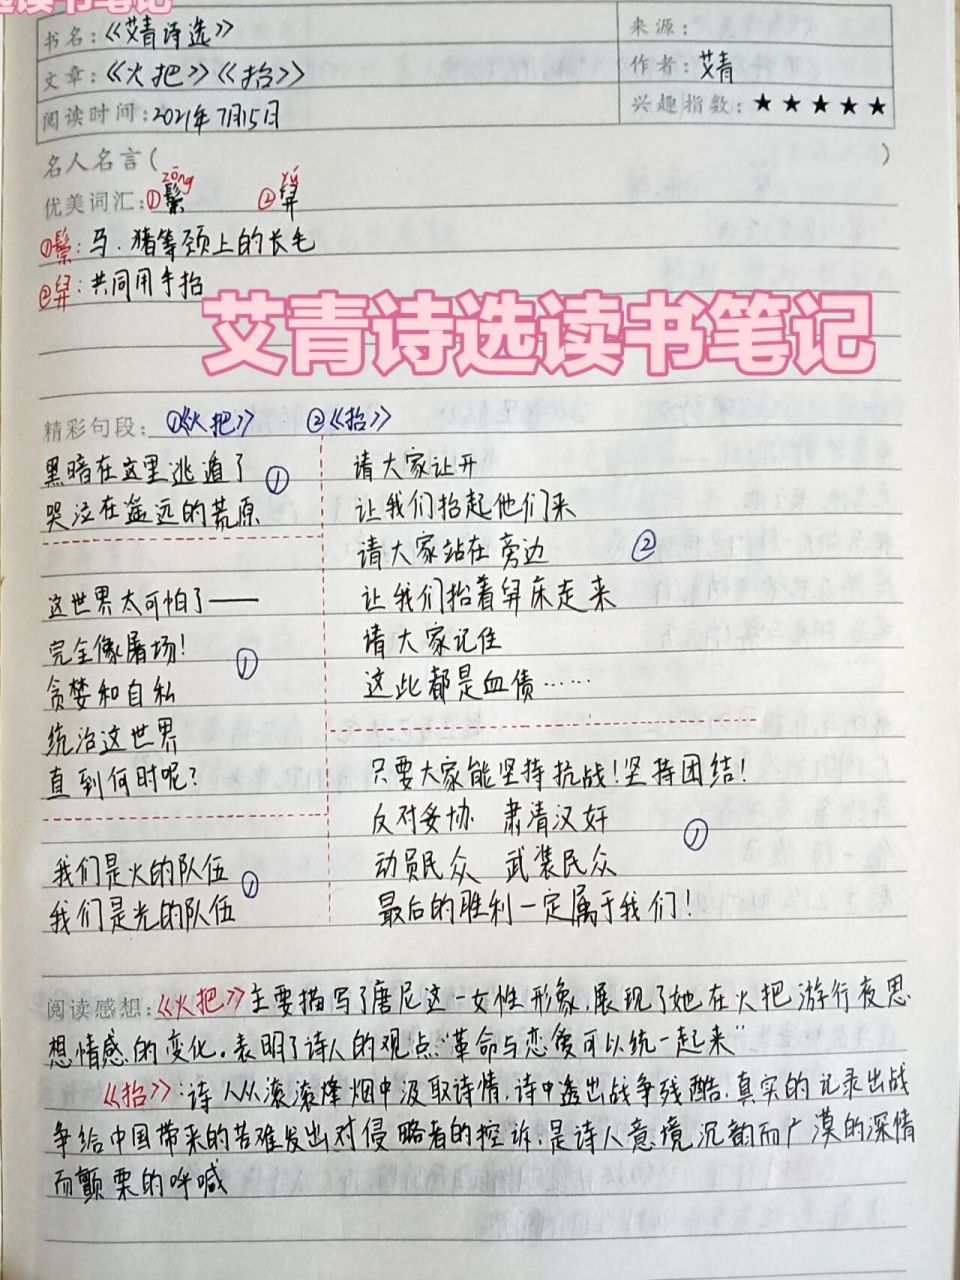 选读书笔记
书名:《艾青诗选》
来源:
文章:《火把》《抬》
作者:艾青
阅读时间:2021年7月15日
兴趣指数:★★★★★
名人名言( )
zōng yú
优美词汇:①鬃 ②舁
①鬃:马.猪等颈上的长毛
②舁:共同用手抬
艾青诗选读书笔记
精彩句段: ①《火把》 ②《抬》
黑暗在这里逃遁了 ①
哭泣在遥远的荒原
这世界太可怕了——
完全像屠场! ①
贪婪和自私
统治这世界
直到何时呢?
我们是火的队伍 ①
我们是光的队伍
请大家让开
让我们抬起他们来
请大家站在旁边 ②
让我们抬着舁床走来
请大家记住
这些都是血债……
只要大家能坚持抗战!坚持团结!
反对妥协 肃清汉奸 ①
动员民众 武装民众
最后的胜利一定属于我们!
阅读感想:《火把》主要描写了唐尼这一女性形象,展现了她在火把游行夜思
想情感的变化。表明了诗人的观点:“革命与恋爱可以统一起来”
《抬》:诗人从滚滚烽烟中汲取诗情,诗中透出战争残酷,真实的记录出战
争给中国带来的苦难发出对侵略者的控诉,是诗人意境沉韵而广漠的深情
而颤栗的呼喊